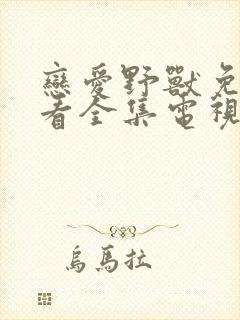 戀愛野獸免
看全集電視
烏馬拉